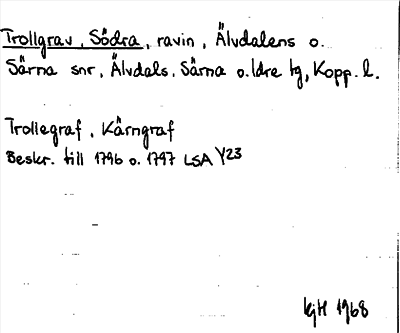 Trollgrav, Södra, ravin, Älvdalens o.
Särna snr, Älvdals, Särna o. Idre tg, Kopp. l.
Trollegraf, Kärngraf
Beskr. till 1796 o. 1797 LSA Y23
KjH 1968